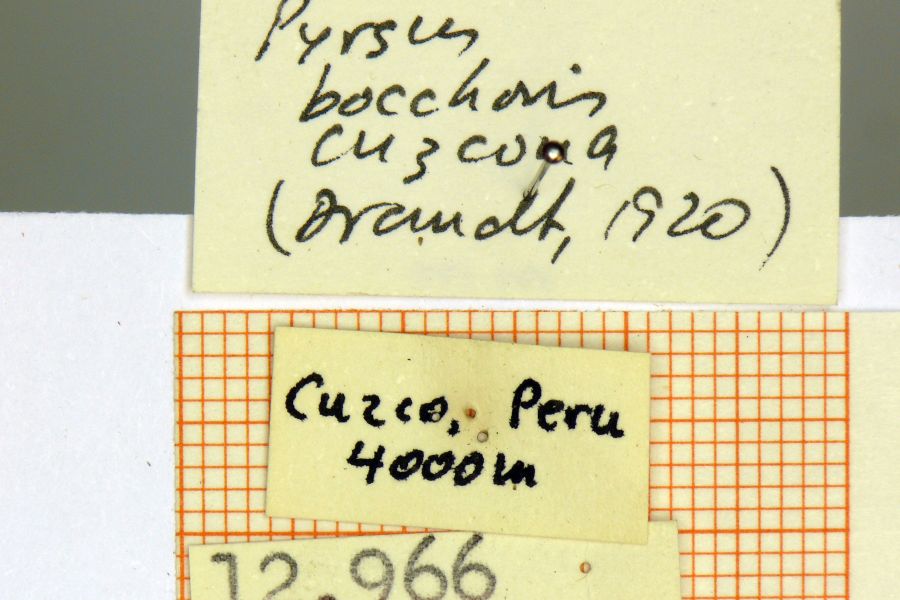 Pyrgus
bocchoris
cuzcona
(Draudt, 1920)
Cuzco, Peru
4000m
12.966